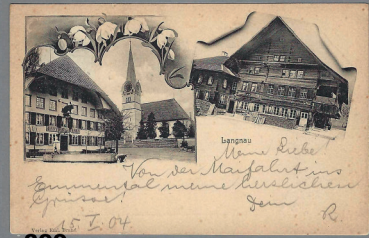 Langnau
Meine Liebe
Von der Maifahrt ins
Emmental meine herzlichen
Grüsse!
Dein R.
15 V. 04
Verlag